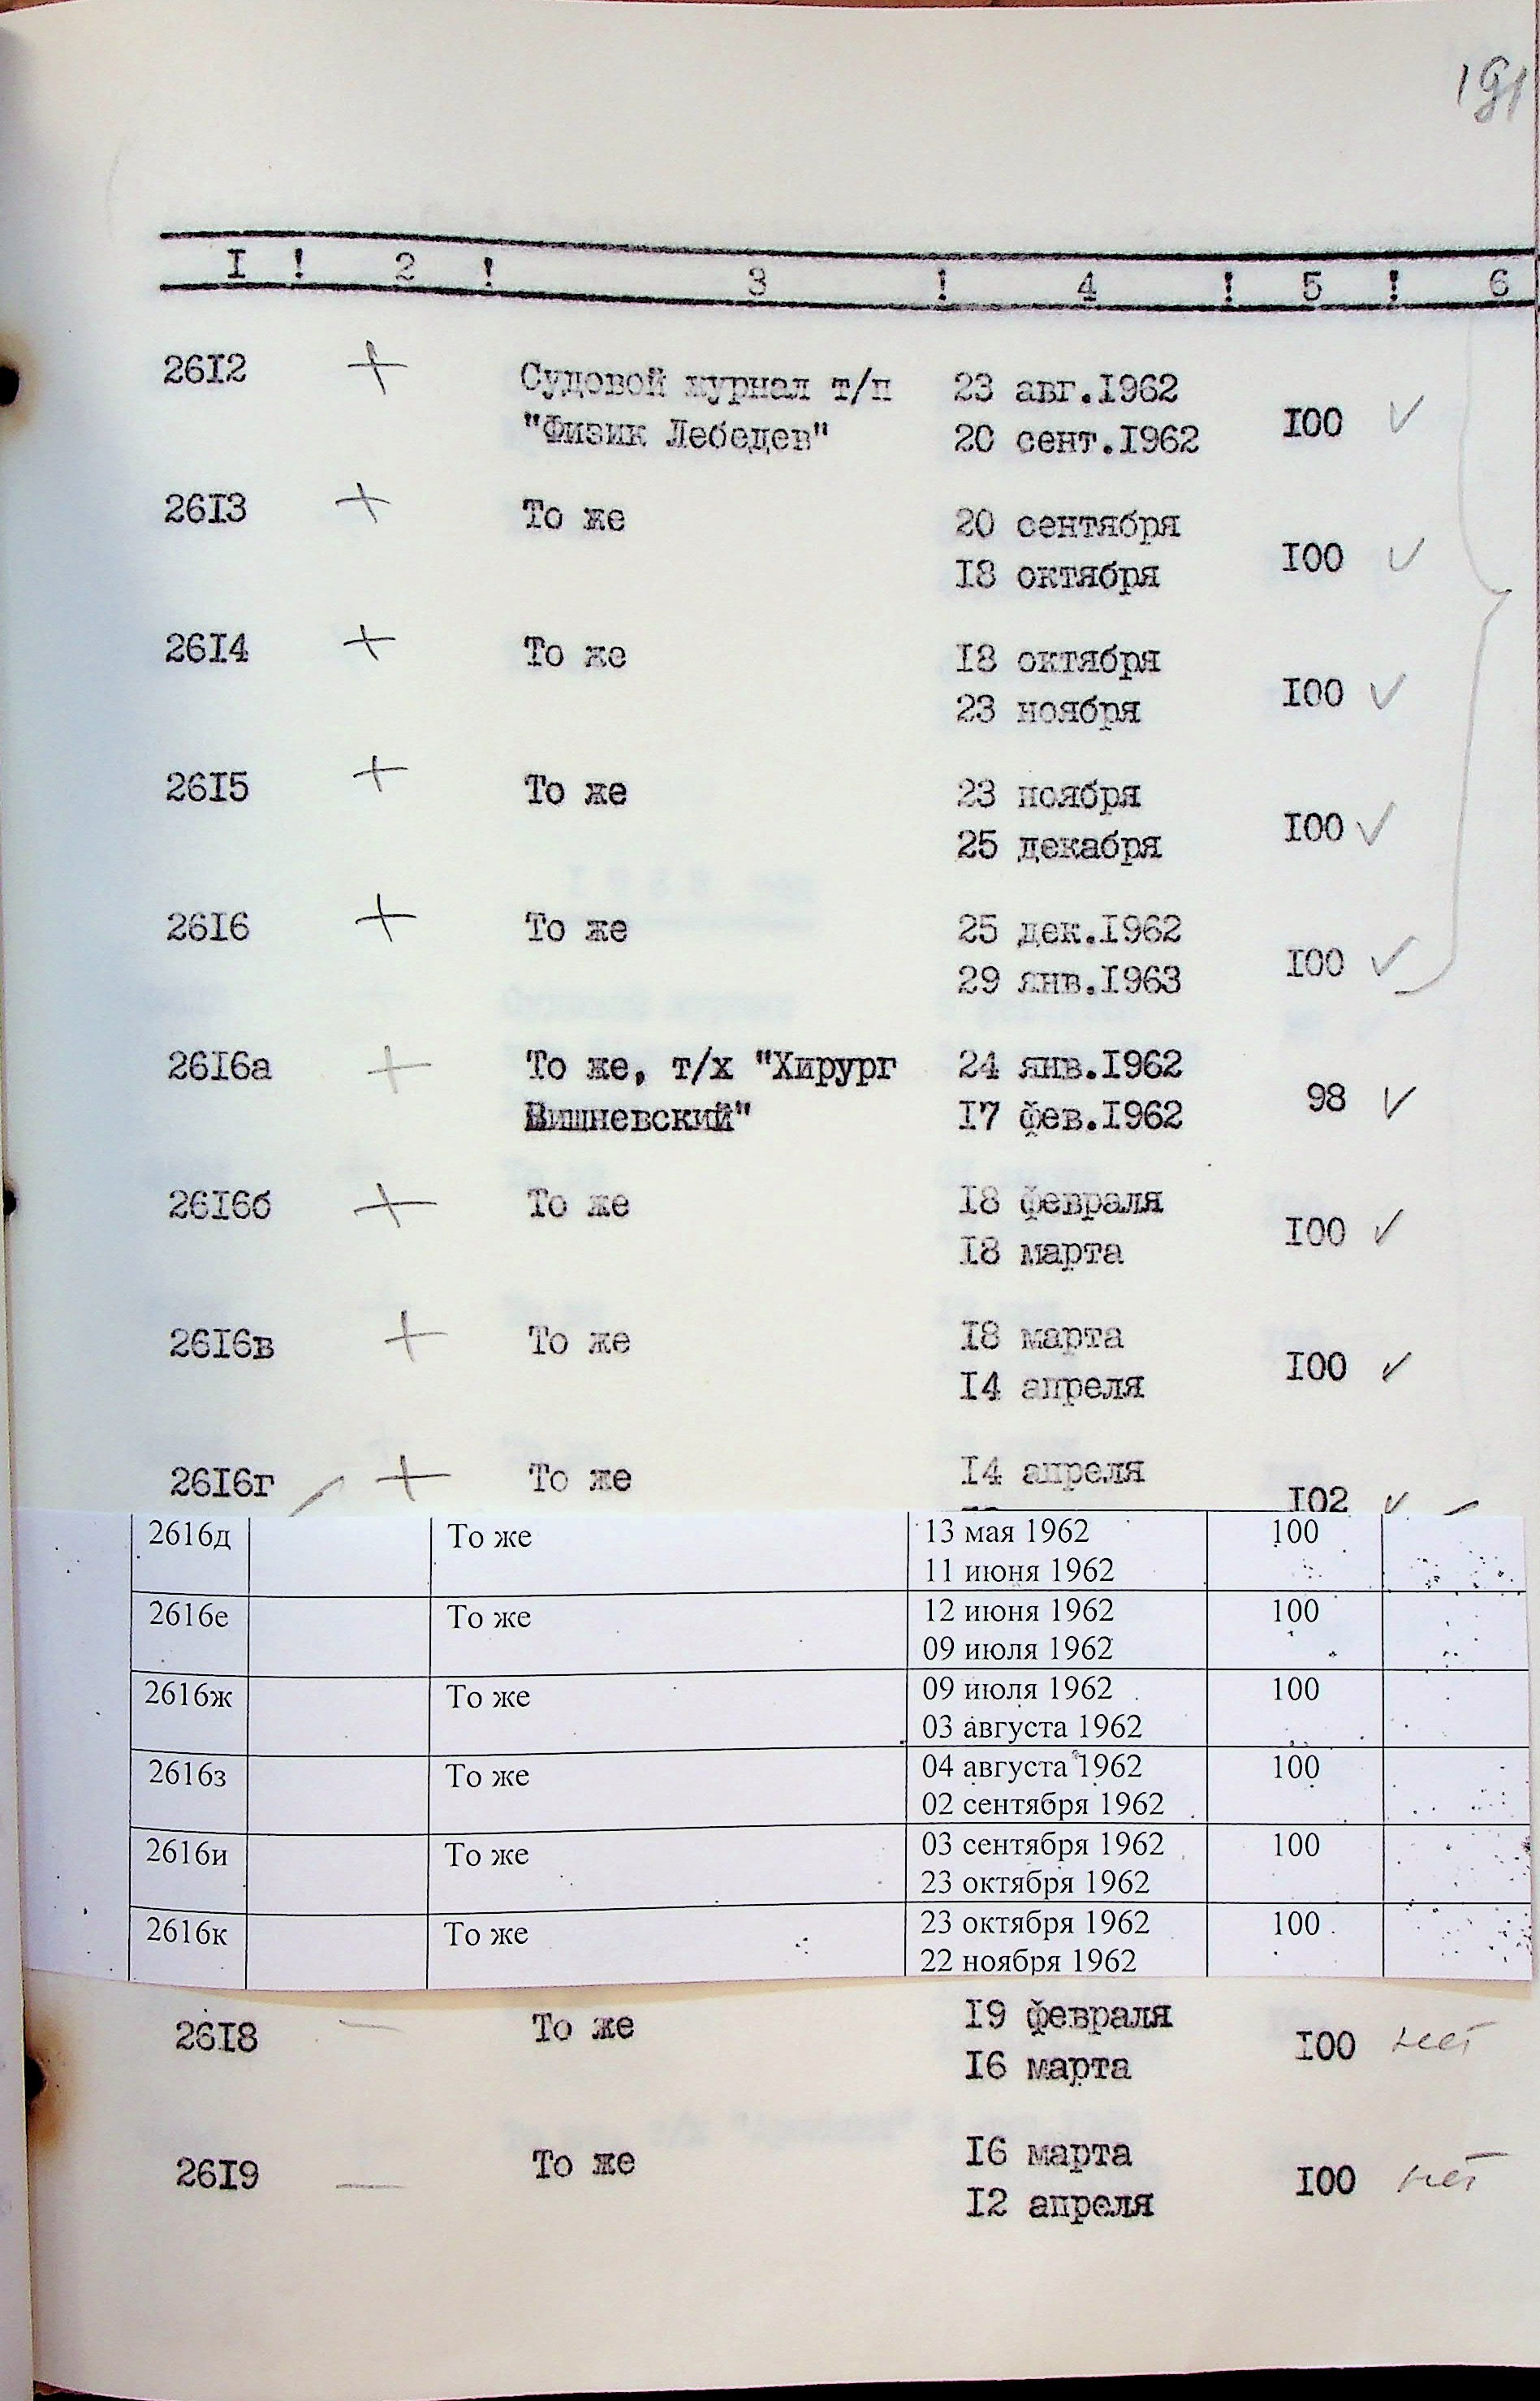 191
I ! 2 ! 3 ! 4 ! 5 ! 6
26I2 + Судовой журнал т/п 23 авг.I962
"Физик Лебедев" 20 сент.I962 I00 ✓
26I3 + То же 20 сентября
I8 октября I00 ✓
26I4 + То же I8 октября
23 ноября I00 ✓
26I5 + То же 23 ноября
25 декабря I00 ✓
26I6 + То же 25 дек.I962
29 янв.I963 I00 ✓
26I6а + То же, т/х "Хирург 24 янв.I962
Вишневский" I7 фев.I962 98 ✓
26I6б + То же I8 февраля
I8 марта I00 ✓
26I6в + То же I8 марта
I4 апреля I00 ✓
26I6г + То же I4 апреля
I02 ✓
2616д То же 13 мая 1962 100
11 июня 1962
2616е То же 12 июня 1962 100
09 июля 1962
2616ж То же 09 июля 1962 100
03 августа 1962
2616з То же 04 августа 1962 100
02 сентября 1962
2616и То же 03 сентября 1962 100
23 октября 1962
2616к То же 23 октября 1962 100
22 ноября 1962
26I8 — То же I9 февраля
I6 марта I00 нет
26I9 — То же I6 марта
I2 апреля I00 нет